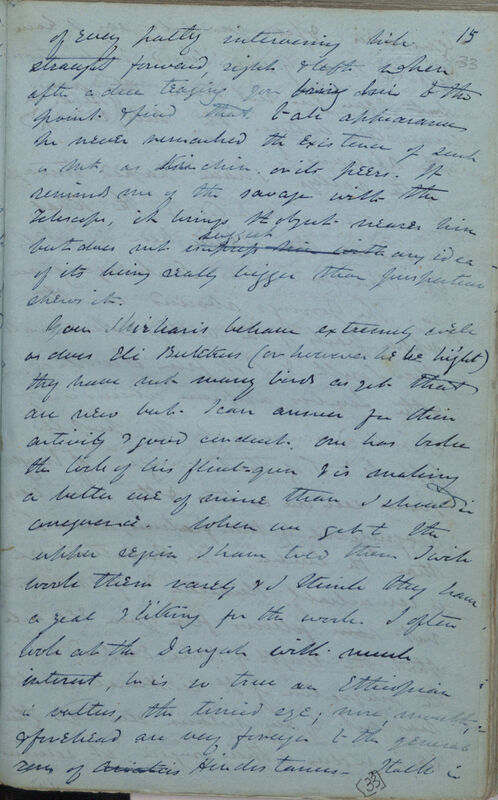 15
33
of every petty intervening hill
straight forward, right & left when
after a deal teazing you bring him to the
point & find that to all appearances
he never remarked the existence of such
a mt. as Kinchin or its peers. It
reminds me of the savage with the
Telescope, it brings the object nearer him
but does not suggest impress him with any idea
of its being really bigger than perspective
shews it.
Your Shikaris behave extremely well
as does Eli Butchers (or however he be hight)
they have not many birds as yet that
are new but I can answer for their
activity & good conduct. one has broke
the lock of his flint-gun & is making
a better use of mine than I should in
consequence. When we get to the
upper region I have told them I will
work them rarely & I think they have
a zeal & liking for the work. I often
look at the with much
interest, he is so true an Ethiopian
in vultus, the eye; nose, mouth,
& forehead are very foreign to the general
run of Hindostanees — Stalk in
33